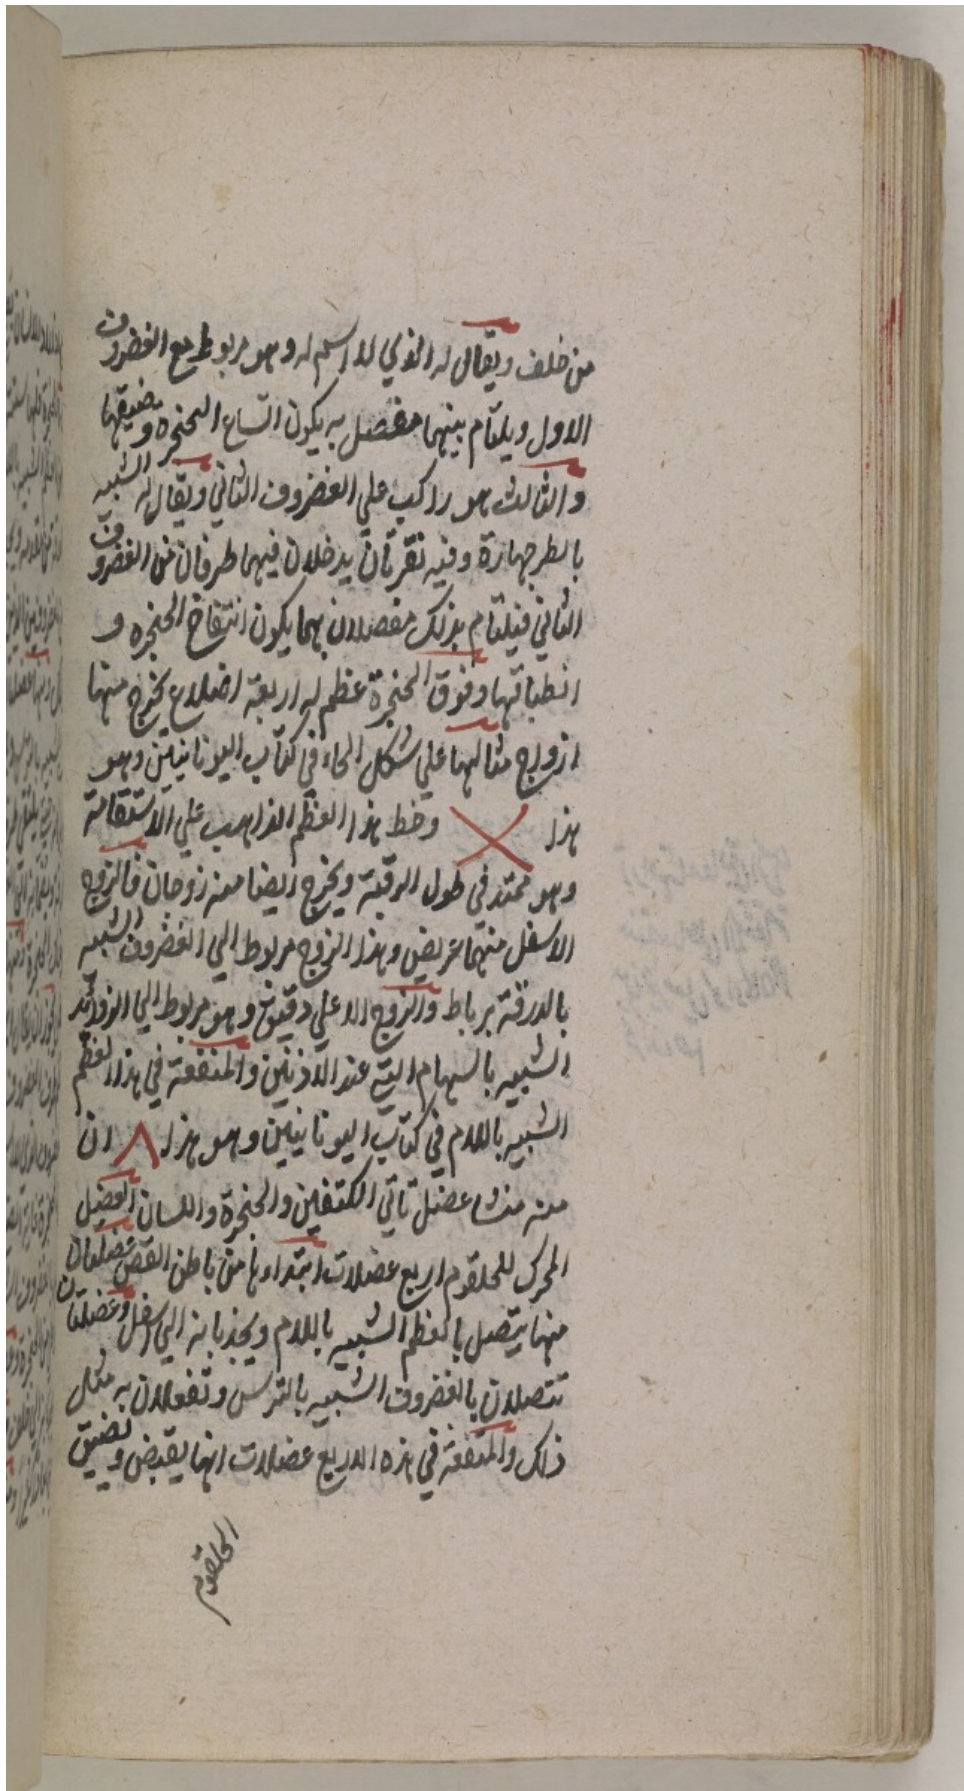 من خلف ويقال له الذي لا اسم له وهو مربوط مع الغضروف
الاول ويلتام بينهما مفصل به يكون اتساع الحنجره وضيقها
والثالث هو راكب علي الغضروف الثاني ويقال له الشبيه
بالطرجهارة وفيه نقرتان يدخلان فيهما طرفان من الغضروف
الثاني فيلتام بذلك مفصلان بهما يكون انتفاخ الحنجره و
انطباقها وفوق الحنجرة عظم له اربعة اضلاع يخرج منها
ازواج مثالها علي شكل الحاء في كتاب اليونانيين وهو
هذا X وخط هذا العظم الذاهب علي الاستقامة
وهو ممتد في طول الرقبة ويخرج ايضا منه زوجان فالزوج
الاسفل منهما عريض وهذا الزوج مربوط الي الغضروف الشبيه
بالدرقة برباط والزوج الاعلي دقيق وهو مربوط الي الزوائد
الشبيه بالسهام التي عند الاذنين والمنفعة في هذا العظم
الشبيه باللام في كتاب اليونانيين وهو هذا Λ ان
منه منشا عضل تاتي الكتفين والحنجرة واللسان العضل
المحرك للحلقوم اربع عضلات ابتداوها من باطن القص عضلتان
منها يتصل بالعظم الشبيه باللام ويجذبانه الي اسفل وعضلتان
تتصلان بالغضروف الشبيه بالترس وتفعلان به مثل
ذلك والمنفعة في هذه الاربع عضلات انها يقبض وتضيق
الحلقوم